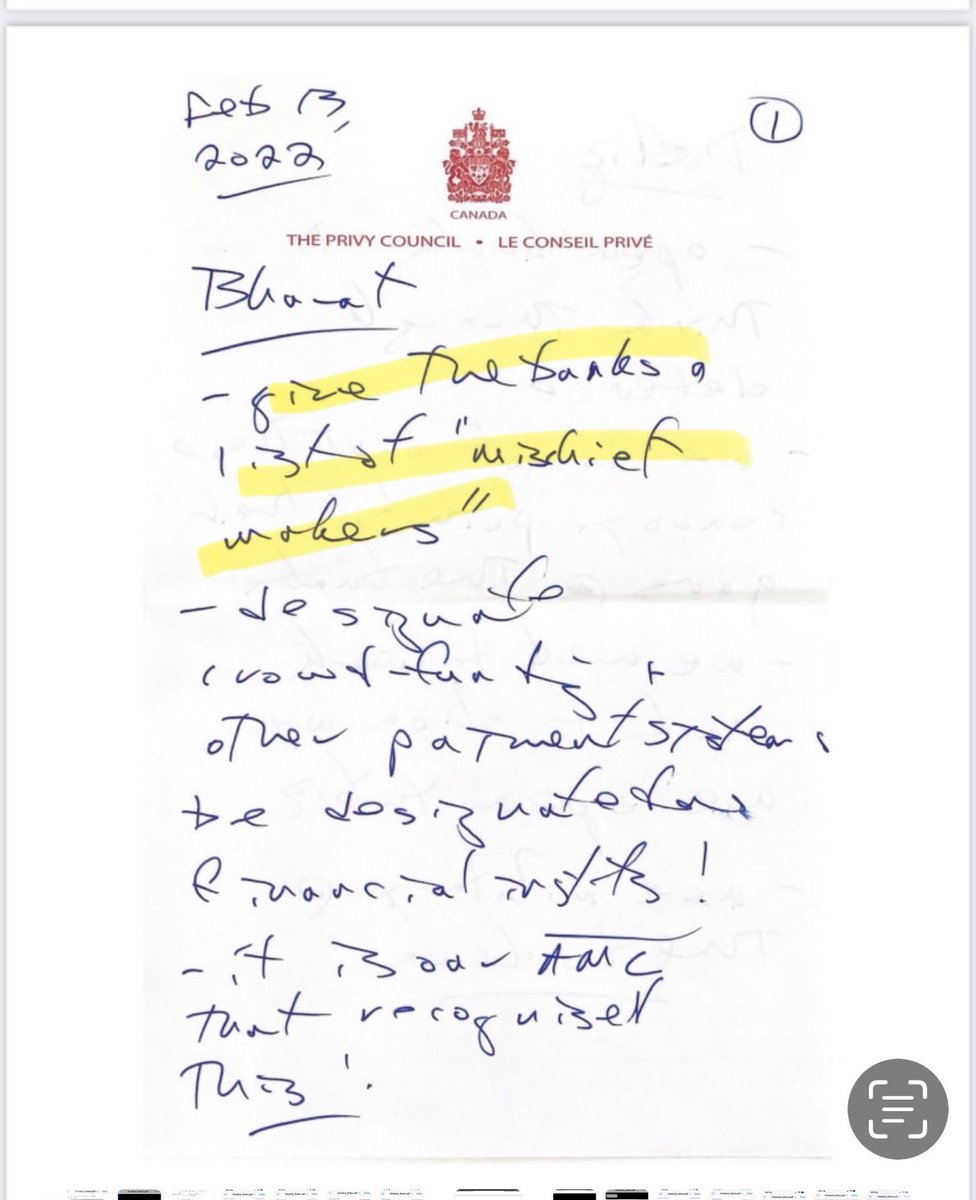 Feb 13,
2022
①
CANADA
THE PRIVY COUNCIL • LE CONSEIL PRIVÉ
Bharat
- give the banks a
list of "mischief
makers"
- designate
crowd-funding +
other payment systems
be designated as
financial instits!
- it is our AML
that recognized
this!